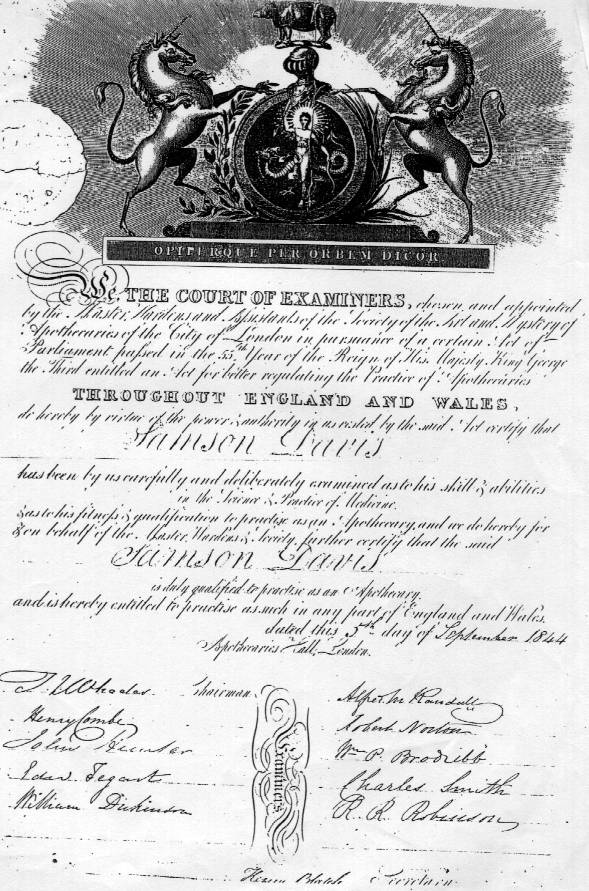 OPIFERQUE PER ORBEM DICOR
We, THE COURT OF EXAMINERS, chosen and appointed
by the Master Wardens and Assistants of the Society of the Art and Mystery of
Apothecaries of the City of London in pursuance of a certain Act of
Parliament passed in the 55th Year of the Reign of His Majesty King George
the Third entitled an Act for better regulating the Practice of Apothecaries
THROUGHOUT ENGLAND AND WALES,
do hereby by virtue of the power & authority in us vested by the said Act certify that
Samson Davis
has been by us carefully and deliberately examined as to his skill & abilities
in the Science & Practice of Medicine
& as to his fitness & qualification to practise as an Apothecary, and we do hereby for
& on behalf of the Master, Wardens & Society, further certify that the said
Samson Davis
is duly qualified to practise as an Apothecary,
and is hereby entitled to practise as such in any part of England and Wales.
dated this 5th day of September 1844
Apothecaries Hall, London.
Chairman
Henry Combe
John Hunter
Edwd Tegart
William Dickinson
Examiners
Alfred M Randall
Robert Norton
Wm P. Brodribb
Charles Smith
R. R. Robinson
Secretary